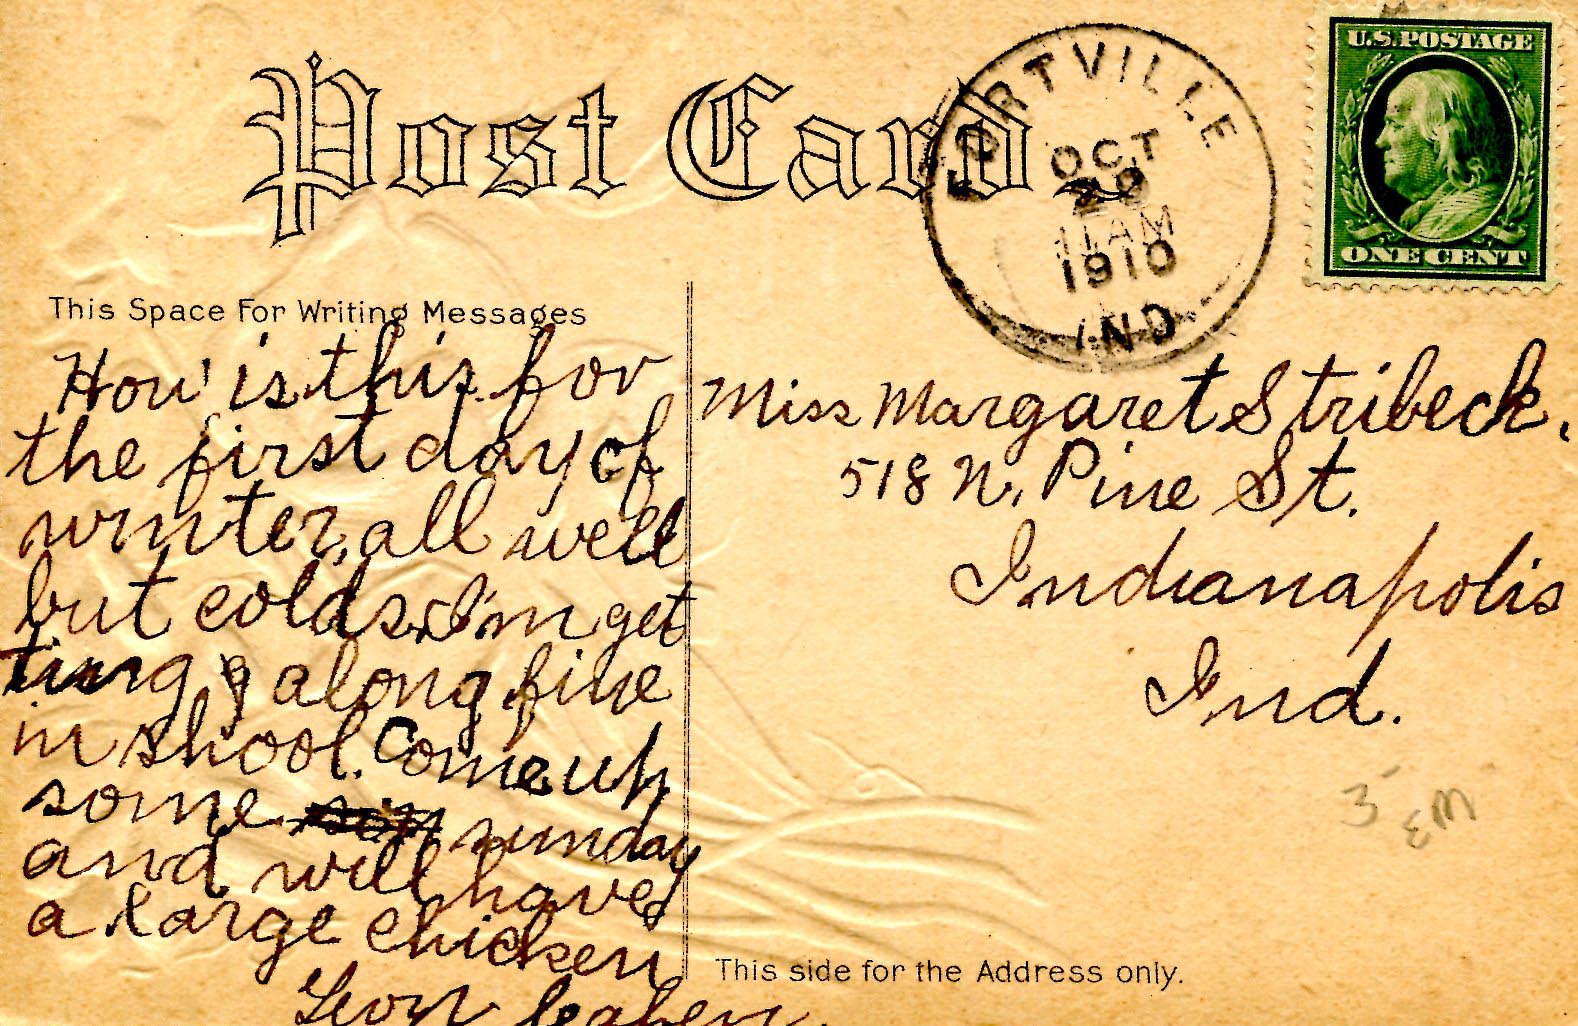 Post Card
FORTVILLE
OCT
29
11 AM
1910
IND.
U.S. POSTAGE
ONE CENT
This Space For Writing Messages
How is this for
the first day of
winter, all well
but colds, I'm get
ting along fine
in shool. Come up
some sunday
and will have
a large chicken
Miss Margaret Stribeck.
518 N. Pine St.
Indianapolis
Ind.
3
This side for the Address only.